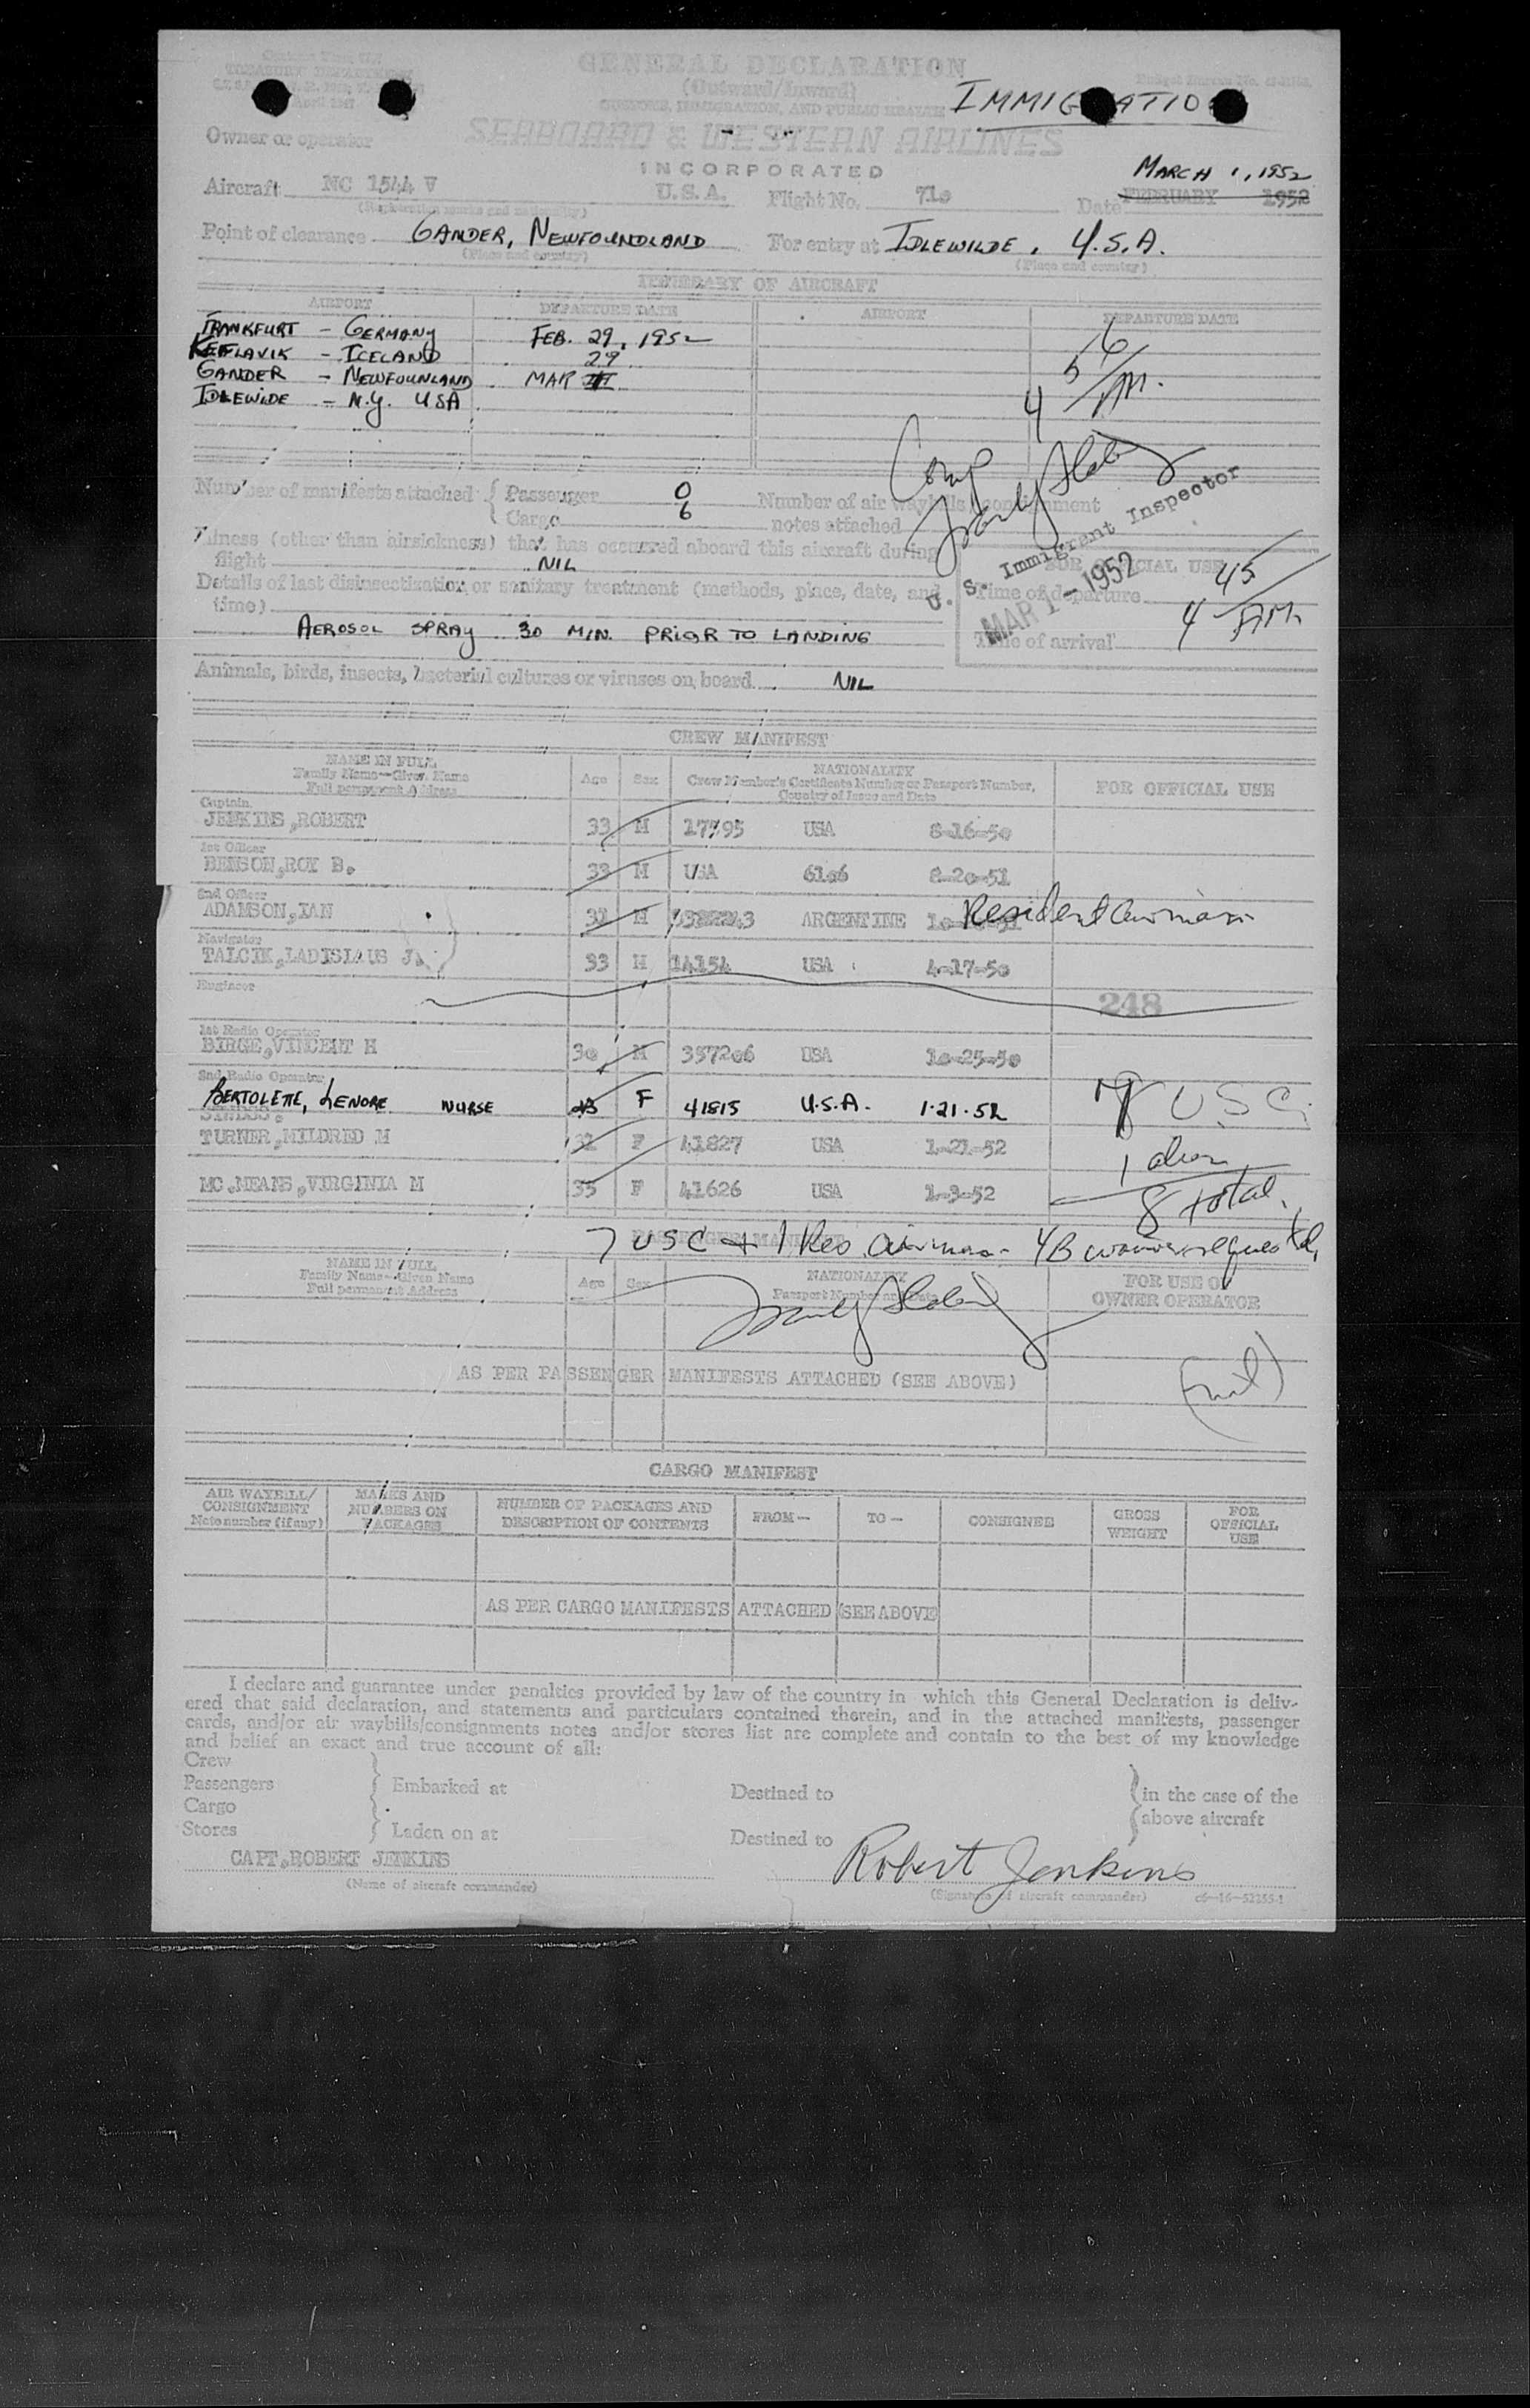 GENERAL DECLARATION
(Outward/Inward)
CUSTOMS, IMMIGRATION, AND PUBLIC HEALTH
IMMIGRATION
TREASURY DEPARTMENT
April 1947
Owner or operator SEABOARD & WESTERN AIRLINES
INCORPORATED
MARCH 1, 1952
Aircraft NC 1544 V U.S.A. Flight No. 71o Date FEBRUARY 1952
(Registration marks and nationality)
Point of clearance GANDER, NEWFOUNDLAND For entry at IDLEWILDE, U.S.A.
(Place and country) (Place and country)
ITINERARY OF AIRCRAFT
AIRPORT DEPARTURE DATE AIRPORT DEPARTURE DATE
FRANKFURT - GERMANY FEB. 29, 1952
KEFLAVIK - ICELAND 29
GANDER - NEWFOUNLAND MAR
IDLEWIDE - N.Y. USA
Number of manifests attached { Passenger 0 Number of air waybills/consignment
{ Cargo 6 notes attached
Illness (other than airsickness) that has occurred aboard this aircraft during
flight NIL
U. S. Immigrant Inspector
MAR 1 - 1952
FOR OFFICIAL USE
Details of last disinsectization or sanitary treatment (methods, place, date, and
time)
Time of departure
45
AEROSOL SPRAY 30 MIN. PRIOR TO LANDING
Time of arrival 4 AM
Animals, birds, insects, bacterial cultures or viruses on board NIL
CREW MANIFEST
NAME IN FULL
Family Name—Given Name
Full permanent Address
Age Sex
NATIONALITY
Crew Member's Certificate Number or Passport Number,
Country of Issue and Date
FOR OFFICIAL USE
Captain
JENKINS,ROBERT 33 M 17595 USA 8-16-5o
1st Officer
BENSON,ROY B. 33 M USA 61o6 8-2o-51
2nd Officer
ADAMSON,IAN M ARGENTINE Resident airman
Navigator
TALCIK,LADISLAUS J. 33 M 14154 USA 4-17-5o
Engineer
248
1st Radio Operator
BIRGE,VINCENT H 3o M 3572o6 USA 1o-25-5o
2nd Radio Operator
BERTOLETTE, LENORE NURSE F 41815 U.S.A. 1-21-52 7 USC
TURNER,MILDRED M F 41827 USA 1-21-52 1 alien
MC.MEANS,VIRGINIA M 35 F 41626 USA 1-3-52 8 total.
7 USC + 1 Res. Airman - 4B waiver requested.
PASSENGER MANIFEST
NAME IN FULL
Family Name—Given Name
Full permanent Address
Age Sex
NATIONALITY
Passport Number and Date
FOR USE OF
OWNER OPERATOR
AS PER PASSENGER MANIFESTS ATTACHED (SEE ABOVE)
(nil)
CARGO MANIFEST
AIR WAYBILL/
CONSIGNMENT
Note number (if any)
MARKS AND
NUMBERS ON
PACKAGES
NUMBER OF PACKAGES AND
DESCRIPTION OF CONTENTS
FROM— TO— CONSIGNEE
GROSS
WEIGHT
FOR
OFFICIAL
USE
AS PER CARGO MANIFESTS ATTACHED (SEE ABOVE
I declare and guarantee under penalties provided by law of the country in which this General Declaration is deliv-
ered that said declaration, and statements and particulars contained therein, and in the attached manifests, passenger
cards, and/or air waybills/consignments notes and/or stores list are complete and contain to the best of my knowledge
and belief an exact and true account of all:
Crew
Passengers } Embarked at Destined to } in the case of the
Cargo } above aircraft
Stores } Laden on at Destined to
CAPT.ROBERT JENKINS Robert Jenkins
(Name of aircraft commander) (Signature of aircraft commander) c6-16-52255-1